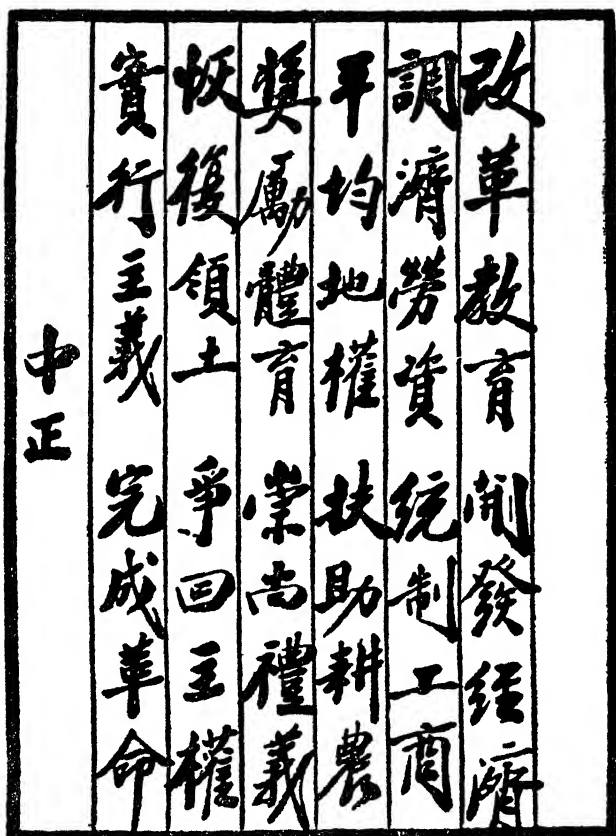 改革教育 開發經濟
調濟勞資 統制工商
平均地權 扶助耕農
獎勵體育 崇尚禮義
恢復領土 爭回主權
實行主義 完成革命
中正